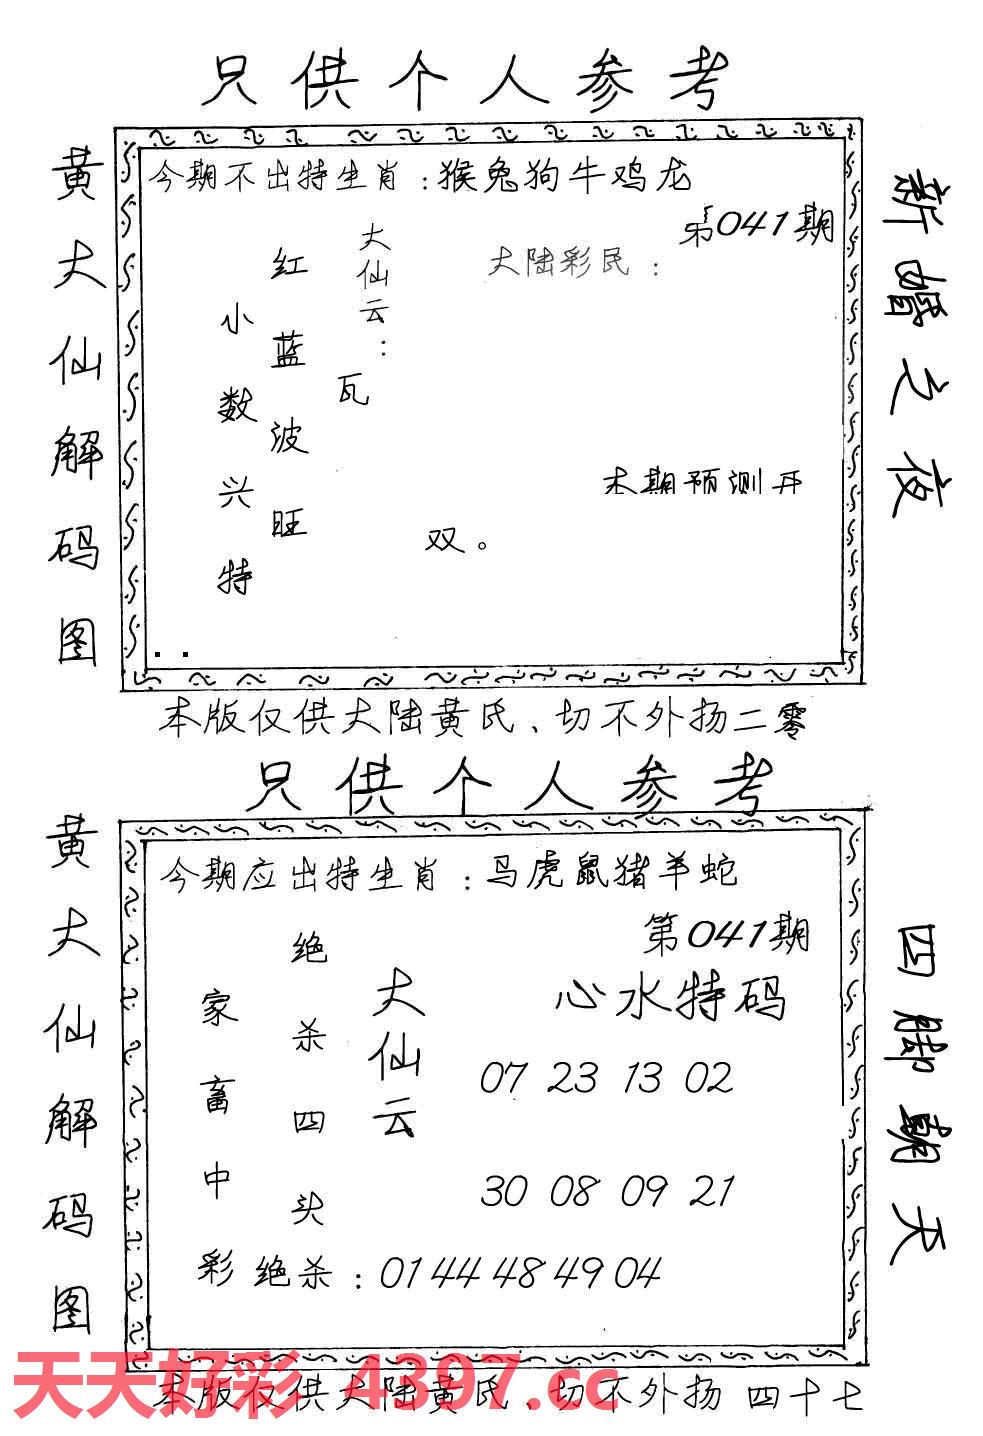 只供个人参考
黄大仙解码图
今期不出特生肖：猴兔狗牛鸡龙
第041期
大陆彩民：
大仙云：
瓦
红蓝波旺
小数兴特
本期预测开
双。
新婚之夜
本版仅供大陆黄氏、切不外扬二零
只供个人参考
黄大仙解码图
今期应出特生肖：马虎鼠猪羊蛇
第041期
心水特码
大仙云
绝杀四头
家畜中彩
07 23 13 02
30 08 09 21
绝杀：01 44 48 49 04
四脚朝天
本版仅供大陆黄氏、切不外扬 四十七
天天好彩 4397.cc